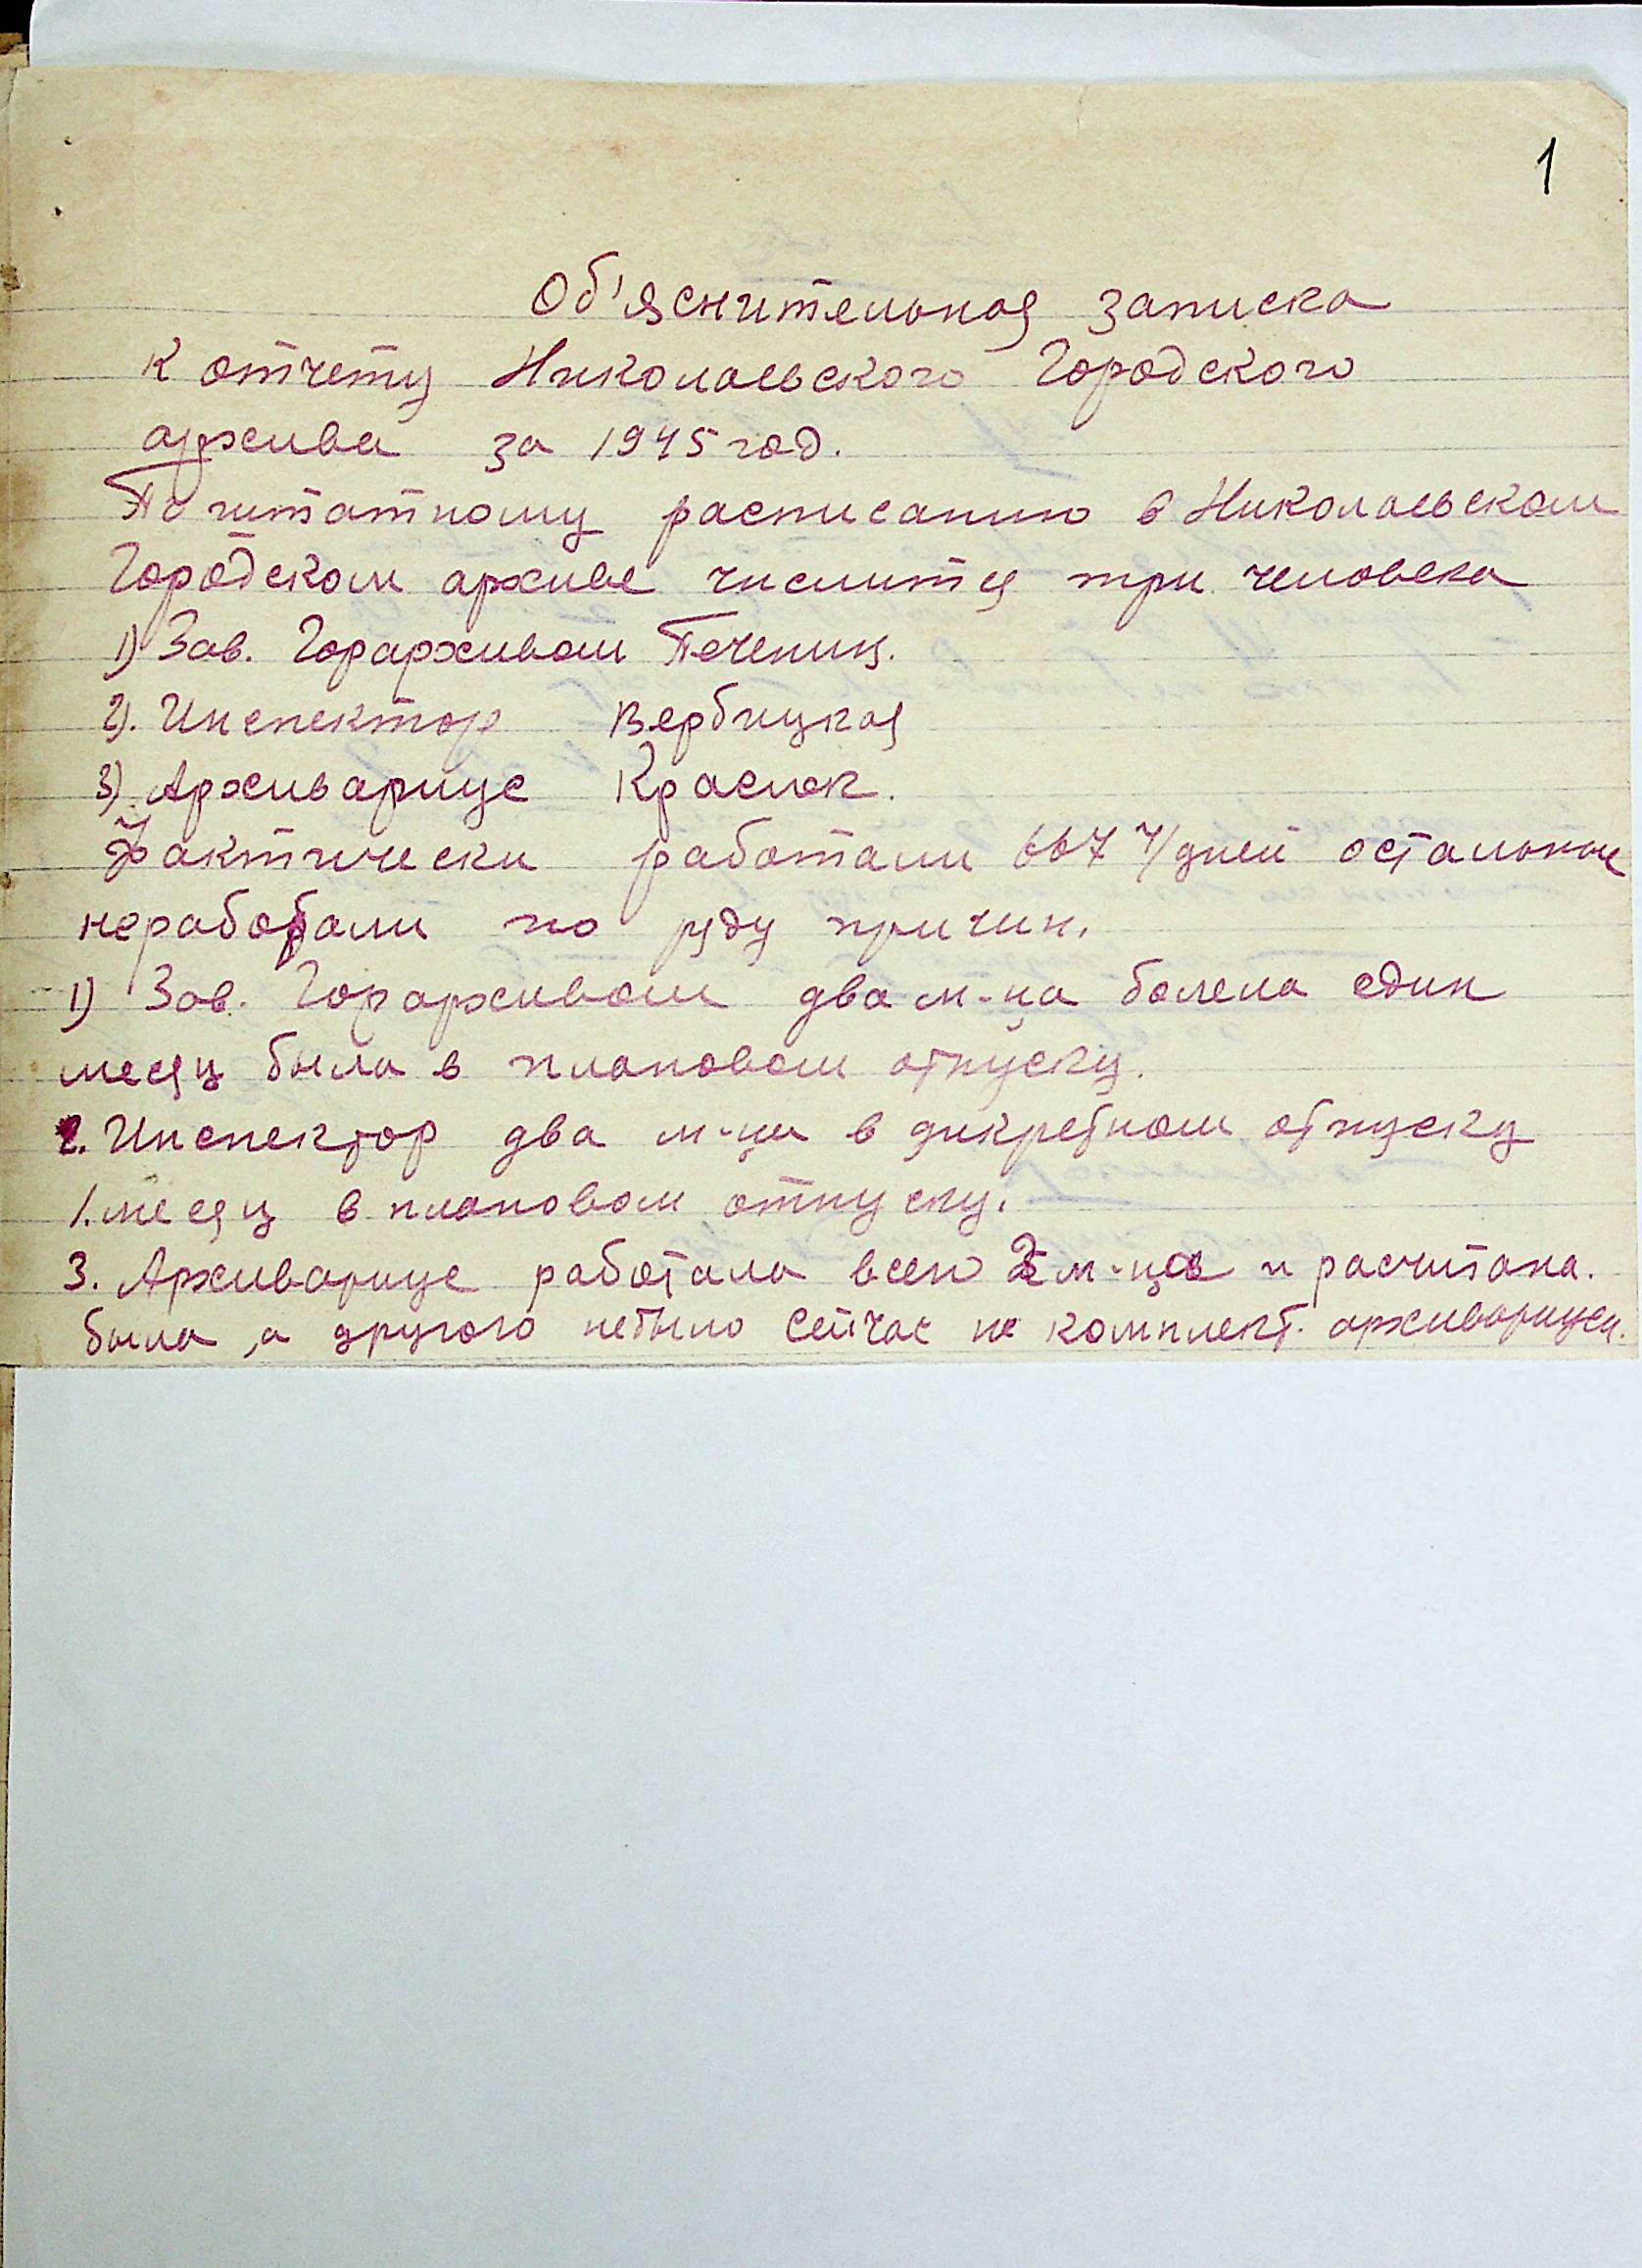 1
Об'яснительная записка
к отчету Николаевского Городского
архива за 1945 год.
По штатному расписанию в Николаевском
Городском архиве числитя три человека
1) Зав. Горархивом Печениц.
2). Инспектор Вербицкая
3). Архивариус Краснок.
Фактически работали 667 ч/дней остальные
неработали по ряду причин.
1) Зав. Горархивом два м-ца болела един
месяц была в плановом отпуску.
2. Инспектор два м-ца в дикретном отпуску
1. месяц в плановом отпуску.
3. Архивариус работала всего 2 м-ца и расчитана.
была, а другого небыло сейчас не комплект. архивариуса.